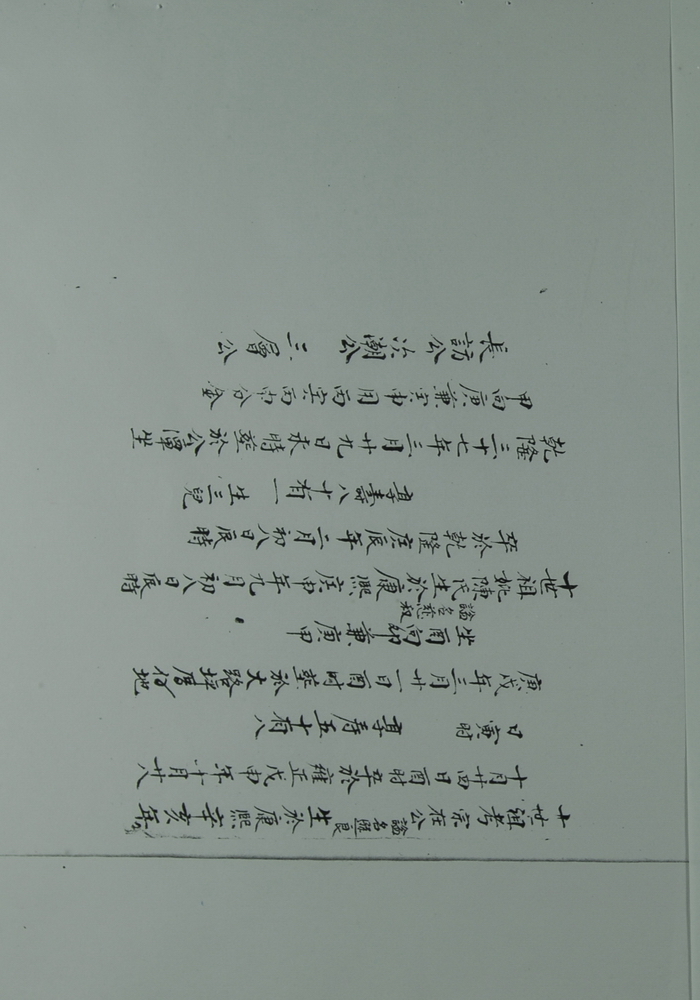 十世祖考宗在公諡名熙良生於康熙辛亥年
十月廿四日酉时卒於雍正戊申年十月廿八
日寅时 享寿五十有八
庚戌年三月廿一日酉时塟於大路坪唇伯地
坐酉向卯兼庚甲
十世祖妣陳氏諡名慈叔生於康熙庚申年九月初八日辰時
卒於乾隆庚辰年二月初八日辰時
享壽八十有一 生三兒
乾隆三十七年三月廿九日未時塟於公潭坐
甲向庚兼寅申用丙寅丙申分金
長訪公 次潮公 三會公